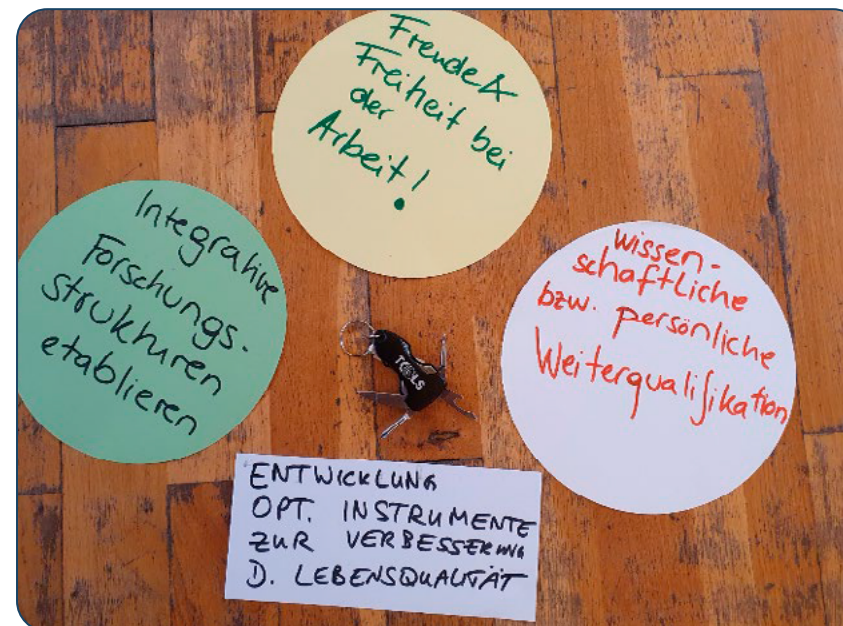 Freude &
Freiheit bei
der
Arbeit!
Integrative
Forschungs-
strukturen
etablieren
wissen-
schaftliche
bzw. persönliche
Weiterqualifikation
TOOLS
ENTWICKLUNG
OPT. INSTRUMENTE
ZUR VERBESSERUNG
D. LEBENSQUALITÄT